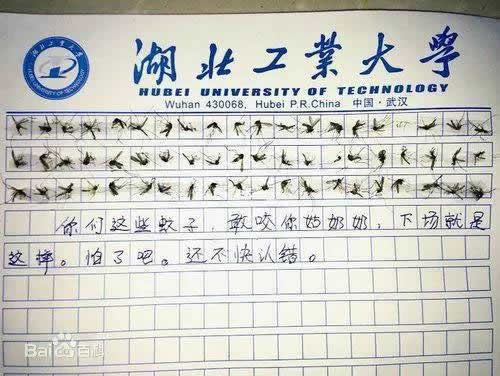 湖北工業大學
HUBEI UNIVERSITY OF TECHNOLOGY
Wuhan 430068, Hubei P.R.China 中国·武汉
你们这些蚊子，敢咬你姑奶奶，下场就是
这样。怕了吧。还不快认错。
Bai百科